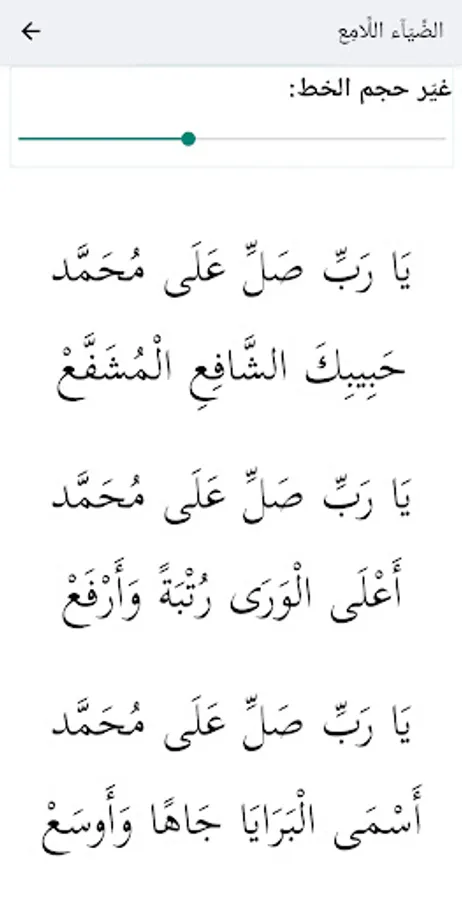 الضِّيَآء اللَّامِع
غيّر حجم الخط:
يَا رَبِّ صَلِّ عَلَى مُحَمَّد
حَبِيبِكَ الشَّافِعِ الْمُشَفَّعْ
يَا رَبِّ صَلِّ عَلَى مُحَمَّد
أَعْلَى الْوَرَى رُتْبَةً وَأَرْفَعْ
يَا رَبِّ صَلِّ عَلَى مُحَمَّد
أَسْمَى الْبَرَايَا جَاهًا وَأَوسَعْ